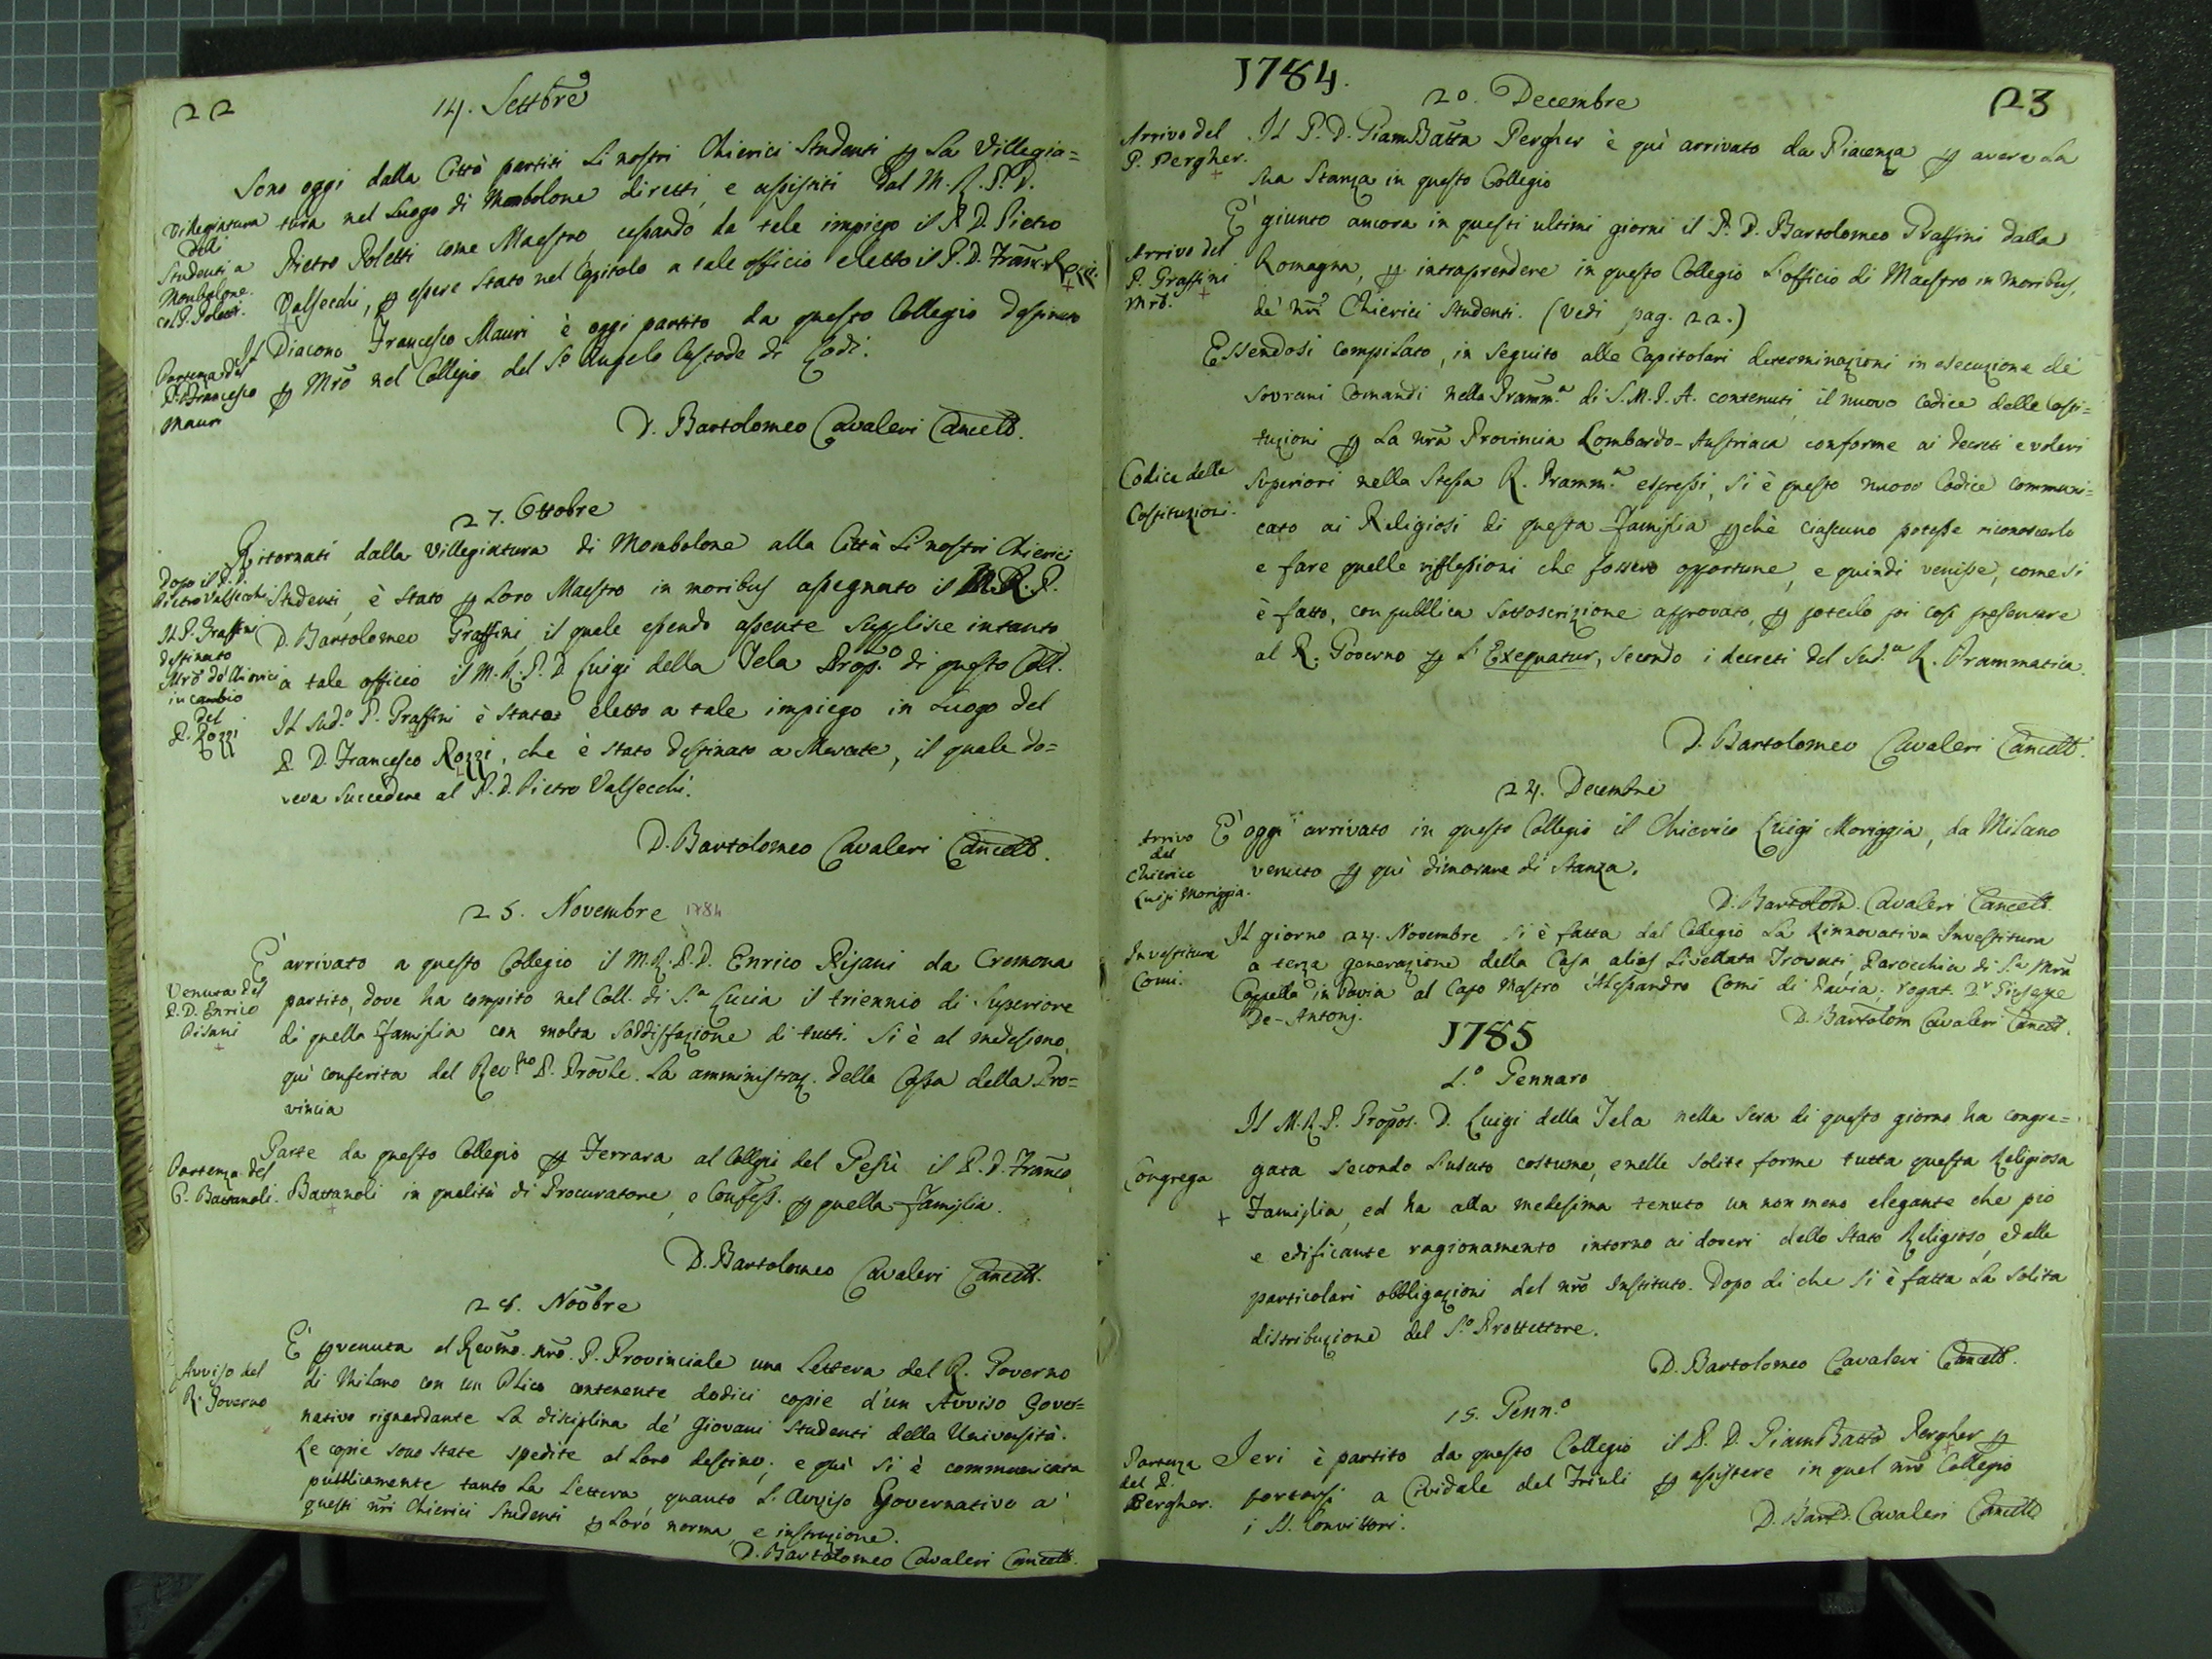 22
14. Settbre
Sono oggi dalla Città partiti li nostri Chierici Studenti p la Villegia=
Villegiatura
delli
Studenti a
Monbolone
col P. Poletti.
tura nel luogo di Mombolone diretti, e assistiti dal M. R. P. D.
Pietro Poletti come Maestro, cessando da tale impiego il P. D. Pietro
Valsecchi, p essere stato nel Capitolo a tale officio eletto il P. D. Franc. Rozzi.
Partenza del
D. Francesco
Mauri
Il Diacono Francesco Mauri è oggi partito da questo Collegio destinato
p Mro nel Collegio del Sto Angelo Custode di Lodi.
D. Bartolomeo Cavaleri Cancell.
27. Ottobre
Ritornati dalla Villegiatura di Mombolone alla Città li nostri Chierici
Dopo il P. D.
Pietro Valsecchi
Il P. Graffini
destinato
Mro de' Chierici
in cambio
del
P. Rozzi
Studenti, è stato p loro Maestro in moribus assegnato il M. R. P.
D. Bartolomeo Graffini, il quale essendo assente supplisce intanto
a tale officio il M. R. P. D. Luigi della Tela Propto di questo Coll.
Il sudo P. Graffini è stato eletto a tale impiego in luogo del
P. D. Francesco Rozzi, che è stato destinato a Merate, il quale do=
veva succedere al P. D. Pietro Valsecchi.
D. Bartolomeo Cavaleri Cancell.
25. Novembre 1784
Venuta del
P. D. Enrico
Pisani
È arrivato a questo Collegio il M. R. P. D. Enrico Pisani da Cremona
partito, dove ha compito nel Coll. di S.a Lucia il triennio di Superiore
di quella famiglia con molta soddisfazione di tutti. Si è al medesimo
quì conferita dal Revmo P. Provle. la amministraz. della Cassa della Pro=
vincia
Partenza del
P. Battanoli.
Parte da questo Collegio p Ferrara al Collegio del Gesù il P. D. Franco
Battanoli in qualità di Procuratore, e Confess. p quella famiglia.
D. Bartolomeo Cavaleri Cancell.
28. Nobre
Avviso del
R. Governo
È pvenuta al Revmo nro P. Provinciale una Lettera del R. Governo
di Milano con un Plico contenente dodici copie d'un Avviso Gover=
nativo riguardante la disciplina de' Giovani Studenti della Università.
Le copie sono state spedite al loro destino; e quì si è communicata
pubblicamente tanto la Lettera, quanto l'Avviso Governativo a'
questi nri Chierici Studenti p loro norma, e instruzione.
D. Bartolomeo Cavaleri Cancell.
1784.
23
20. Decembre
Arrivo del
P. Pergher.
Il P. D. GiamBatta Pergher è quì arrivato da Piacenza p avere la
sua Stanza in questo Collegio
Arrivo del
P. Graffini
Mro.
È giunto ancora in questi ultimi giorni il P. D. Bartolomeo Graffini dalla
Romagna, p intraprendere in questo Collegio l'officio di Maestro in moribus,
de' nri Chierici Studenti. (vedi pag. 22.)
Essendosi compilato, in seguito alle Capitolari determinazioni in esecuzione de'
sovrani Comandi nella Pramm.a di S. M. I. A. contenuti, il nuovo Codice delle Costi=
tuzioni p la nra Provincia Lombardo-Austriaca conforme ai decreti e voleri
Codice delle
Costituzioni.
superiori nella stessa R. Pramm.a espressi, si è questo nuovo Codice communi=
cato ai Religiosi di questa famiglia pchè ciascuno potesse riconoscerlo
e fare quelle riflessioni che fossero opportune, e quindi venisse, come si
è fatto, con pubblica sottoscrizione approvato, p poterlo poi così presentare
al R. Governo p l'Exequatur, secondo i decreti del Sud.a R. Prammatica.
D. Bartolomeo Cavaleri Cancell.
24. Decembre
Arrivo
del
Chierico
Luigi Moriggia.
È oggi arrivato in questo Collegio il Chierico Luigi Moriggia, da Milano
venuto p quì dimorare di Stanza.
D. Bartolom. Cavaleri Cancell.
Investitura
Comi.
Il giorno 24. Novembre si è fatta dal Collegio la Rinnovativa Investitura
a terza generazione della Casa alias Livellata Trovati, Parocchia di S.a Mra
Cappella in Pavia al Capo Mastro Alessandro Comi di Pavia; rogat. Dr Giuseppe
De-Antonj.
D. Bartolom Cavaleri Cancell.
1785
1.o Gennaro
Congrega
Il M. R. P. Propos. D. Luigi della Tela nella sera di questo giorno ha congre=
gata secondo l'usato costume, e nelle solite forme tutta questa Religiosa
Famiglia, ed ha alla medesima tenuto un non meno elegante che pio
e edificante ragionamento intorno ai doveri dello Stato Religioso, ed alle
particolari obbligazioni del nro Instituto. Dopo di che si è fatta la solita
distribuzione del S.o Prottettore.
D. Bartolomeo Cavaleri Cancell.
15. Genn.o
Partenza
del P.
Pergher.
Ieri è partito da questo Collegio il P. D. GiamBatta Pergher p
portarsi a Cividale del Friuli p assistere in quel nro Collegio
i SS. Convittori.
D. Bart. Cavaleri Cancell.